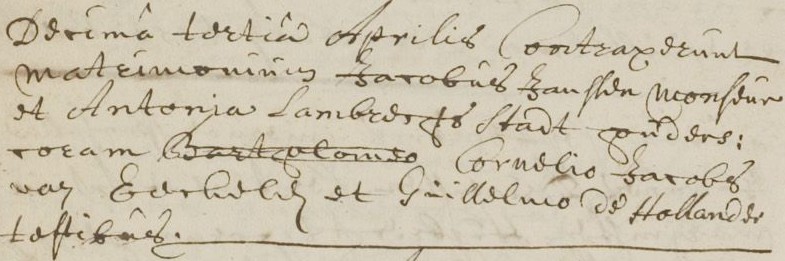 Decimâ tertiâ Aprilis Contraxerunt
matrimonium Jacobus Janssen monseur
et Antonia Lambrechs Stadt
coram Bartolomeo Cornelio Jacobs
van et Guillelmo de Hollander
testibus.